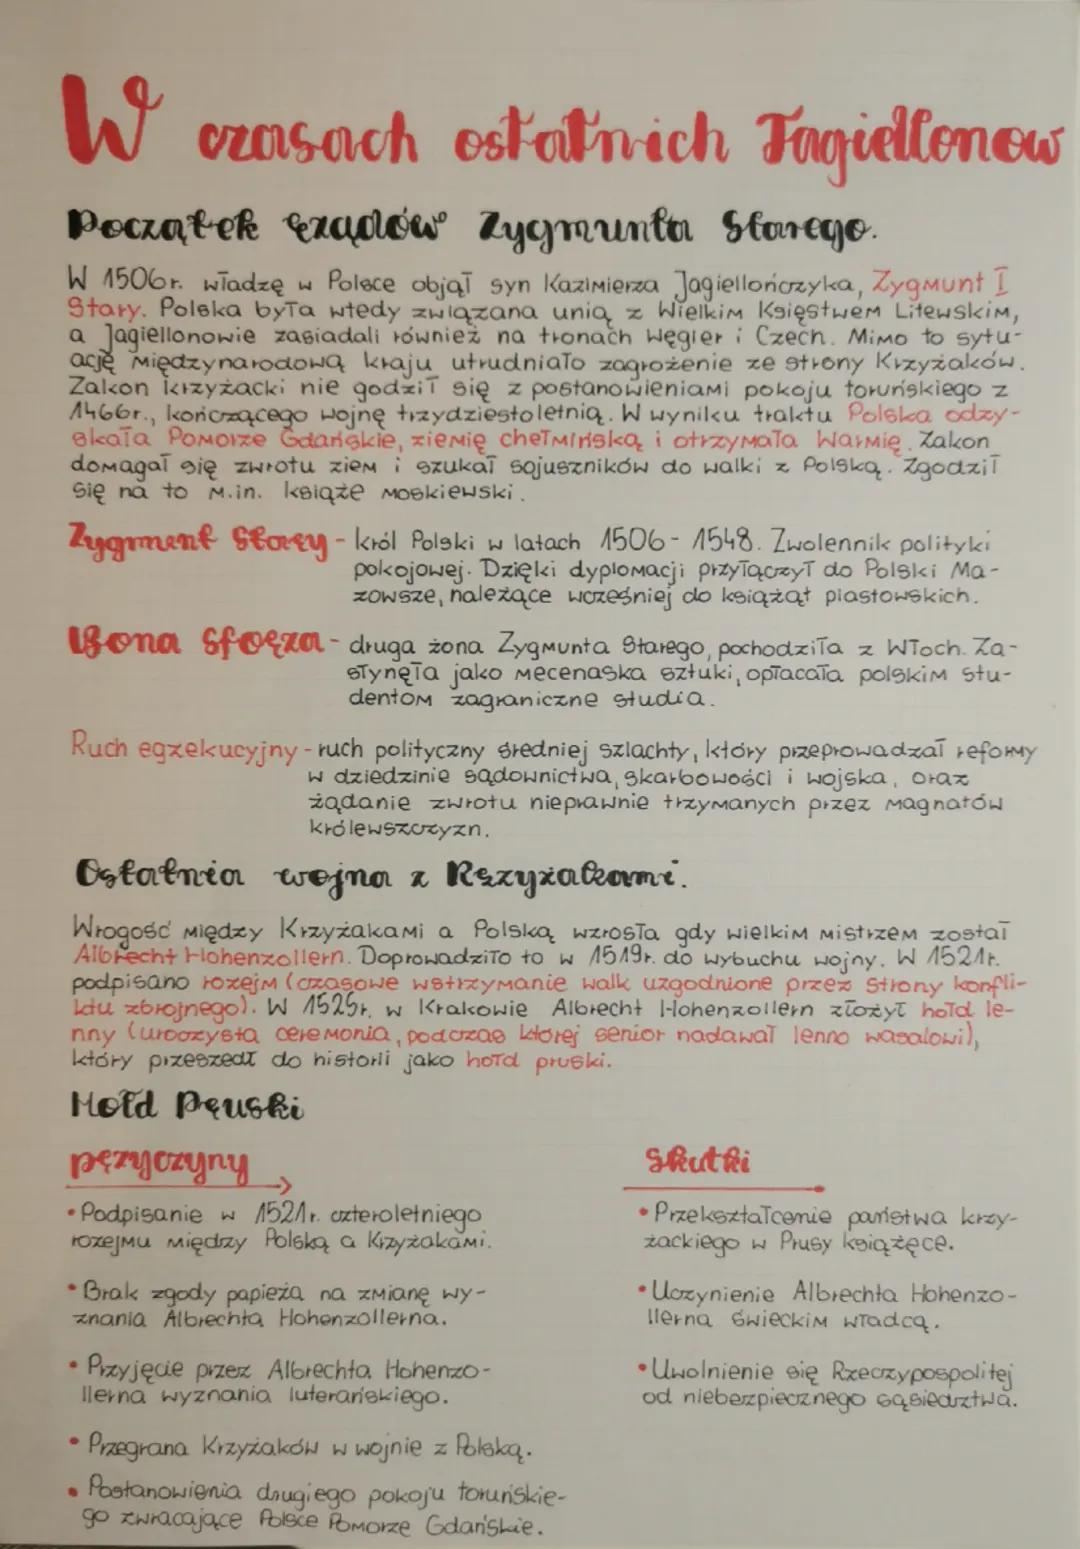 W czasach ostatnich Jagiellonow
Początek rządów Zygmunta Starego.
W 1506r. władzę w Polsce objął syn Kazimierza Jagiellończyka, Zygmunt I
Stary. Polska była wtedy związana unią z Wielkim Księstwem Litewskim,
a Jagiellonowie zasiadali również na tronach Węgier i Czech. Mimo to sytu-
ację międzynarodową kraju utrudniało zagrożenie ze strony Krzyżaków.
Zakon krzyżacki nie godził się z postanowieniami pokoju toruńskiego z
1466r., kończącego wojnę trzydziestoletnią. W wyniku traktu Polska odzy-
skała Pomorze Gdańskie, ziemię chełmińską i otrzymała Warmię. Zakon
domagał się zwrotu ziem i szukał sojuszników do walki z Polską. Zgodził
się na to m.in. książe moskiewski.
Zygment Stary - król Polski w latach 1506 - 1548. Zwolennik polityki
pokojowej. Dzięki dyplomacji przyłączył do Polski Ma-
zowsze, należące wcześniej do książąt piastowskich.
Bona Sforza - druga żona Zygmunta Starego, pochodziła z Włoch. Za-
słynęła jako mecenaska sztuki, opłacała polskim stu-
dentom zagraniczne studia.
Ruch egzekucyjny - ruch polityczny średniej szlachty, który przeprowadzał reformy
w dziedzinie sądownictwa, skarbowości i wojska, oraz
żądanie zwrotu nieprawnie trzymanych przez magnatów
królewszczyzn.
Ostatnia wojna z Krzyżakami.
Wrogość między Krzyżakami a Polską wzrosła gdy wielkim mistrzem został
Albrecht Hohenzollern. Doprowadziło to w 1519r. do wybuchu wojny. W 1521r.
podpisano rozejm (czasowe wstrzymanie walk uzgodnione przez strony konfli-
ktu zbrojnego). W 1525r. w Krakowie Albrecht Hohenzollern złożył hołd le-
nny (uroczysta ceremonia, podczas której senior nadawał lenno wasalowi),
który przeszedł do historii jako hołd pruski.
Hołd Pruski
przyczyny
• Podpisanie w 1521r. czteroletniego
rozejmu między Polską a Krzyżakami.
• Brak zgody papieża na zmianę wy-
znania Albrechta Hohenzollerna.
• Przyjęcie przez Albrechta Hohenzo-
llerna wyznania luterańskiego.
• Przegrana Krzyżaków w wojnie z Polską.
• Postanowienia drugiego pokoju toruńskie-
go zwracające Polsce Pomorze Gdańskie.
Skutki
• Przekształcenie państwa krzy-
żackiego w Prusy książęce.
• Uczynienie Albrechta Hohenzo-
llerna świeckim władcą.
• Uwolnienie się Rzeczypospolitej
od niebezpiecznego sąsiedztwa.